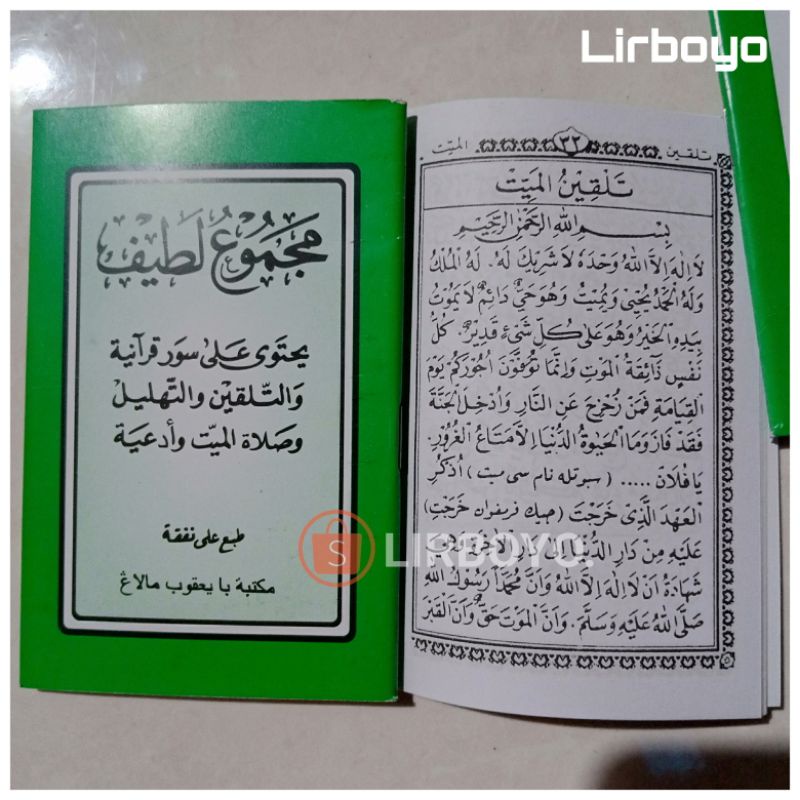 Lirboyo
مجموع لطيف
يحتوى على سور قرآنية
والتلقين والتهليل
وصلاة الميت وأدعية
طبع على نفقة
مكتبة بايعقوب مالاڠ
LIRBOYO.
تلقين ٣٢ الميّت
تَلْقِيْنُ الْمَيِّتْ
بِسْمِ اللهِ الرَّحْمٰنِ الرَّحِيْمِ
لَااِلٰهَ اِلَّا اللهُ وَحْدَهُ لَاشَرِيْكَ لَهُ. لَهُ الْمُلْكُ
وَلَهُ الْحَمْدُ يُحْيِيْ وَيُمِيْتُ وَهُوَحَيٌّ دَائِمٌ لَايَمُوْتُ
بِيَدِهِ الْخَيْرُ وَهُوَعَلٰى كُلِّ شَيْءٍ قَدِيْرٌ. كُلُّ
نَفْسٍ ذَائِقَةُ الْمَوْتِ وَاِنَّمَا تُوَفَّوْنَ اُجُوْرَكُمْ يَوْمَ
الْقِيَامَةِ فَمَنْ زُحْزِحَ عَنِ النَّارِ وَاُدْخِلَ الْجَنَّةَ
فَقَدْ فَازَ وَمَا الْحَيٰوةُ الدُّنْيَا اِلَّامَتَاعُ الْغُرُوْرِ.
يَافُلَانُ ..... (سبوتله نام سى ميت) اُذْكُرِ
الْعَهْدَ الَّذِيْ خَرَجْتَ (جيك فرمفوان خَرَجْتِ)
عَلَيْهِ مِنْ دَارِ الدُّنْيَا اِلٰى دَارِ الْاٰخِرَةِ وَهِيَ
شَهَادَةُ اَنْ لَااِلٰهَ اِلَّا اللهُ وَاَنَّ مُحَمَّدًا رَسُوْلُ اللهِ
صَلَّى اللهُ عَلَيْهِ وَسَلَّمَ. وَاَنَّ الْمَوْتَ حَقٌّ وَاَنَّ الْقَبْرَ